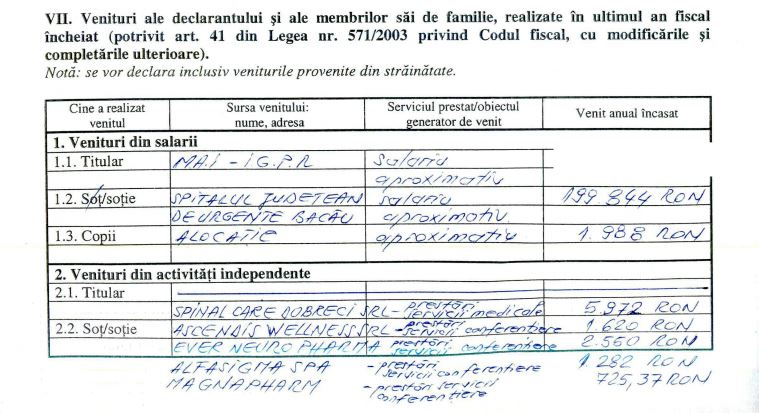 VII. Venituri ale declarantului și ale membrilor săi de familie, realizate în ultimul an fiscal
încheiat (potrivit art. 41 din Legea nr. 571/2003 privind Codul fiscal, cu modificările și
completările ulterioare).
Notă: se vor declara inclusiv veniturile provenite din străinătate.
Cine a realizat venitul Sursa venitului: nume, adresa Serviciul prestat/obiectul generator de venit Venit anual încasat
1. Venituri din salarii
1.1. Titular MAI - IGPR salariu
aproximativ
1.2. Soț/soție SPITALUL JUDEȚEAN salariu 199.844 RON
DE URGENTE BACĂU aproximativ
1.3. Copii ALOCATIE aproximativ 1.988 RON
2. Venituri din activități independente
2.1. Titular
SPINAL CARE DOBRECI SRL - prestări servicii medicale 5.972 RON
2.2. Soț/soție ASCENDIS WELLNESS SRL - prestări servicii conferențiere 1.620 RON
EVER NEURO PHARMA prestări servicii conferențiere 2.550 RON
ALFASIGMA SPA - prestări servicii conferențiere 1.282 RON
MAGNAPHARM - prestări servicii conferențiere 725,37 RON